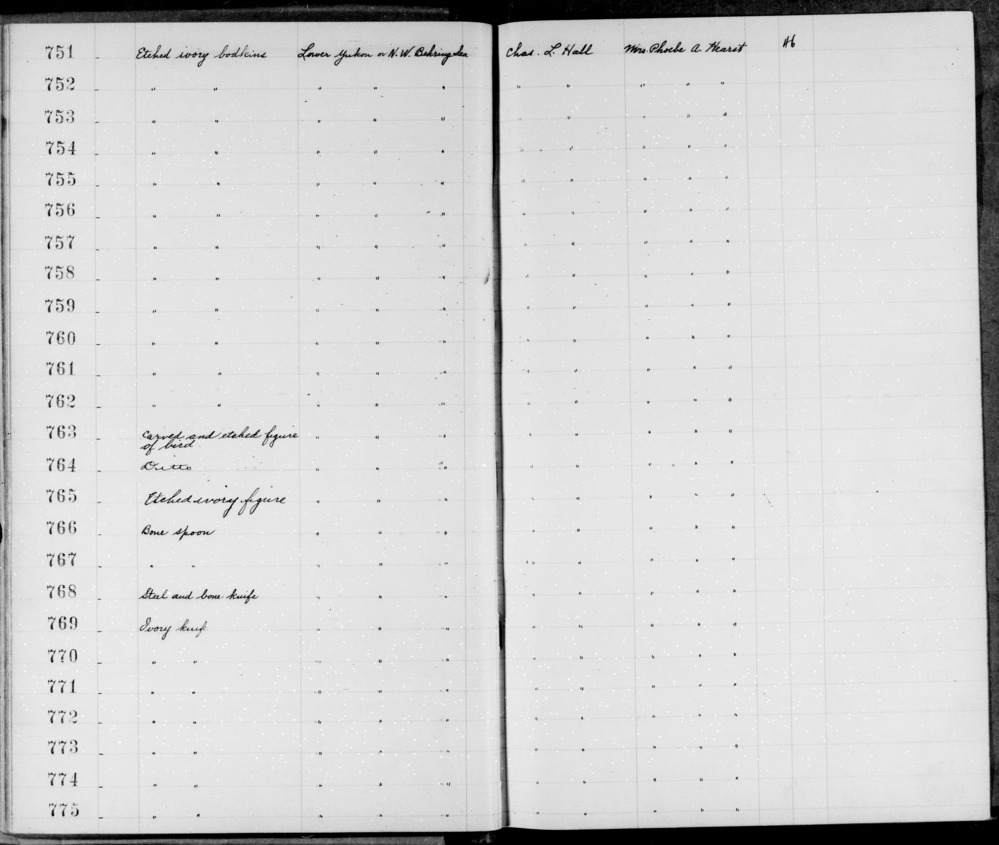 751 Etched ivory bodkins Lower Yukon or N.W. Behring Sea Chas. L. Hall Mrs. Phoebe A. Hearst 46
752 " " " " " " " " " "
753 " " " " " " " " " "
754 " " " " " " " " " "
755 " " " " " " " " " "
756 " " " " " " " " " "
757 " " " " " " " " " "
758 " " " " " " " " " "
759 " " " " " " " " " "
760 " " " " " " " " " "
761 " " " " " " " " " "
762 " " " " " " " " " "
763 Carved and etched figure " " " " " " " "
of bird
764 Ditto " " " " " " " "
765 Etched ivory figure " " " " " " " "
766 Bone spoon " " " " " " " "
767 " " " " " " " " " "
768 Steel and bone knife " " " " " " " "
769 Ivory knife " " " " " " " "
770 " " " " " " " " " "
771 " " " " " " " " " "
772 " " " " " " " " " "
773 " " " " " " " " " "
774 " " " " " " " " " "
775 " " " " " " " " " "